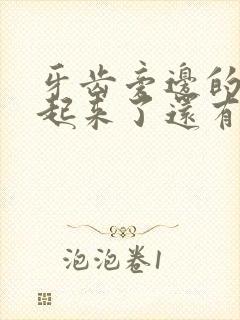 牙齿旁边的
起来了還有
泡泡卷1